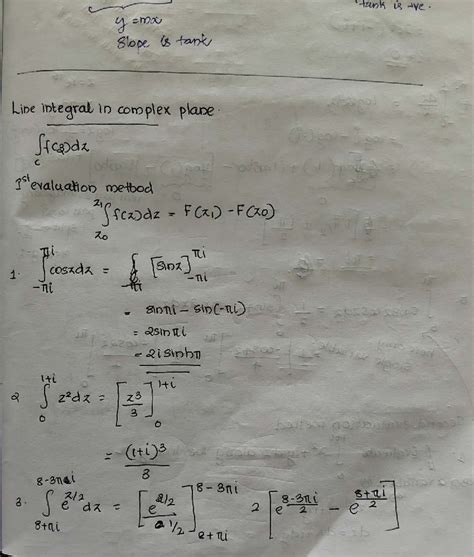 tank is +ve.
y=mx
Slope is tank
Line integral in complex plane.
∫_c f(z)dz
1st evaluation method
∫_{z0}^{z1} f(z)dz = F(z1) - F(z0)
1. ∫_{-πi}^{πi} coszdz = [sinz]_{-πi}^{πi}
= sinπi - sin(-πi)
= 2sinπi
= 2isinhπ
2 ∫_0^{1+i} z²dz = [z³/3]_0^{1+i}
= (1+i)³/3
3. ∫_{8+πi}^{8-3πi} e^{z/2}dz = [e^{z/2}/1/2]_{8+πi}^{8-3πi} 2[e^{(8-3πi)/2} - e^{(8+πi)/2}]